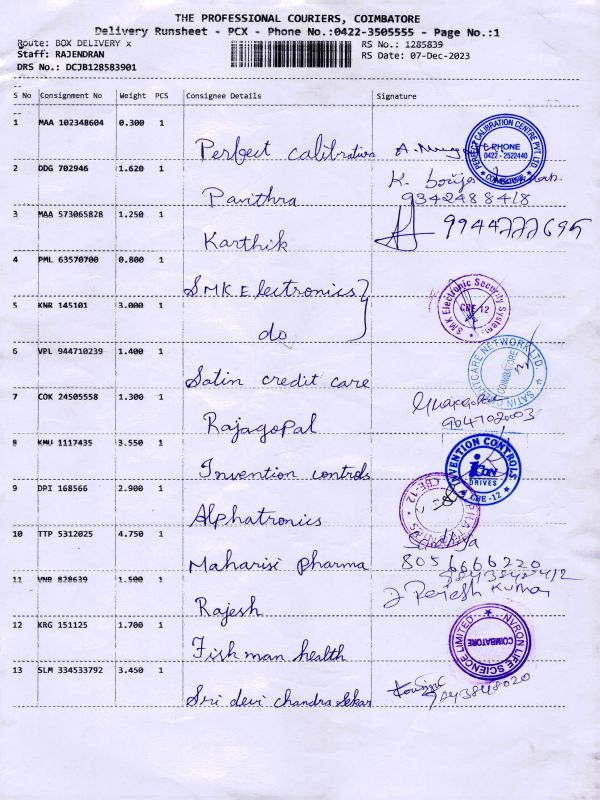 THE PROFESSIONAL COURIERS, COIMBATORE
Delivery Runsheet - PCX - Phone No.:0422-3505555 - Page No.:1
Route: BOX DELIVERY x
RS No.: 1285839
Staff: RAJENDRAN
RS Date: 07-Dec-2023
DRS No.: DCJB128583901
S No Consignment No Weight PCS Consignee Details Signature
1 MAA 102348604 0.300 1
Perfect calibration A.
PERFECT CALIBRATION CENTRE PVT. LTD PHONE 0422 - 2522440 COIMBATORE
2 DDG 702946 1.620 1
Pavithra K.
9342488418
3 MAA 573065828 1.250 1
Karthik 9944777695
4 PML 63570700 0.800 1
SMK Electronics
SMK Electronic Security Systems CBE-12
5 KNR 145101 3.000 1
do
6 VPL 944710239 1.400 1
Satin credit care
SATIN CREDITCARE NETWORK LTD. COIMBATORE
7 COK 24505558 1.300 1
Rajagopal
8 KMU 1117435 3.550 1
Invention controls
INVENTION CONTROLS icon DRIVES CBE-12
9 DPI 168566 2.900 1
Alphatronics
CBE-12
10 TTP 5312025 4.750 1
Maharisi pharma
8056666220
11 VNB 828639 1.500 1
Rajesh Rajesh Kumar
12 KRG 151125 1.700 1
Fishman health
NVRON LIFE SCIENCE LIMITED COIMBATORE
13 SLM 334533792 3.450 1
Sri devi chandra sekar
9843848020